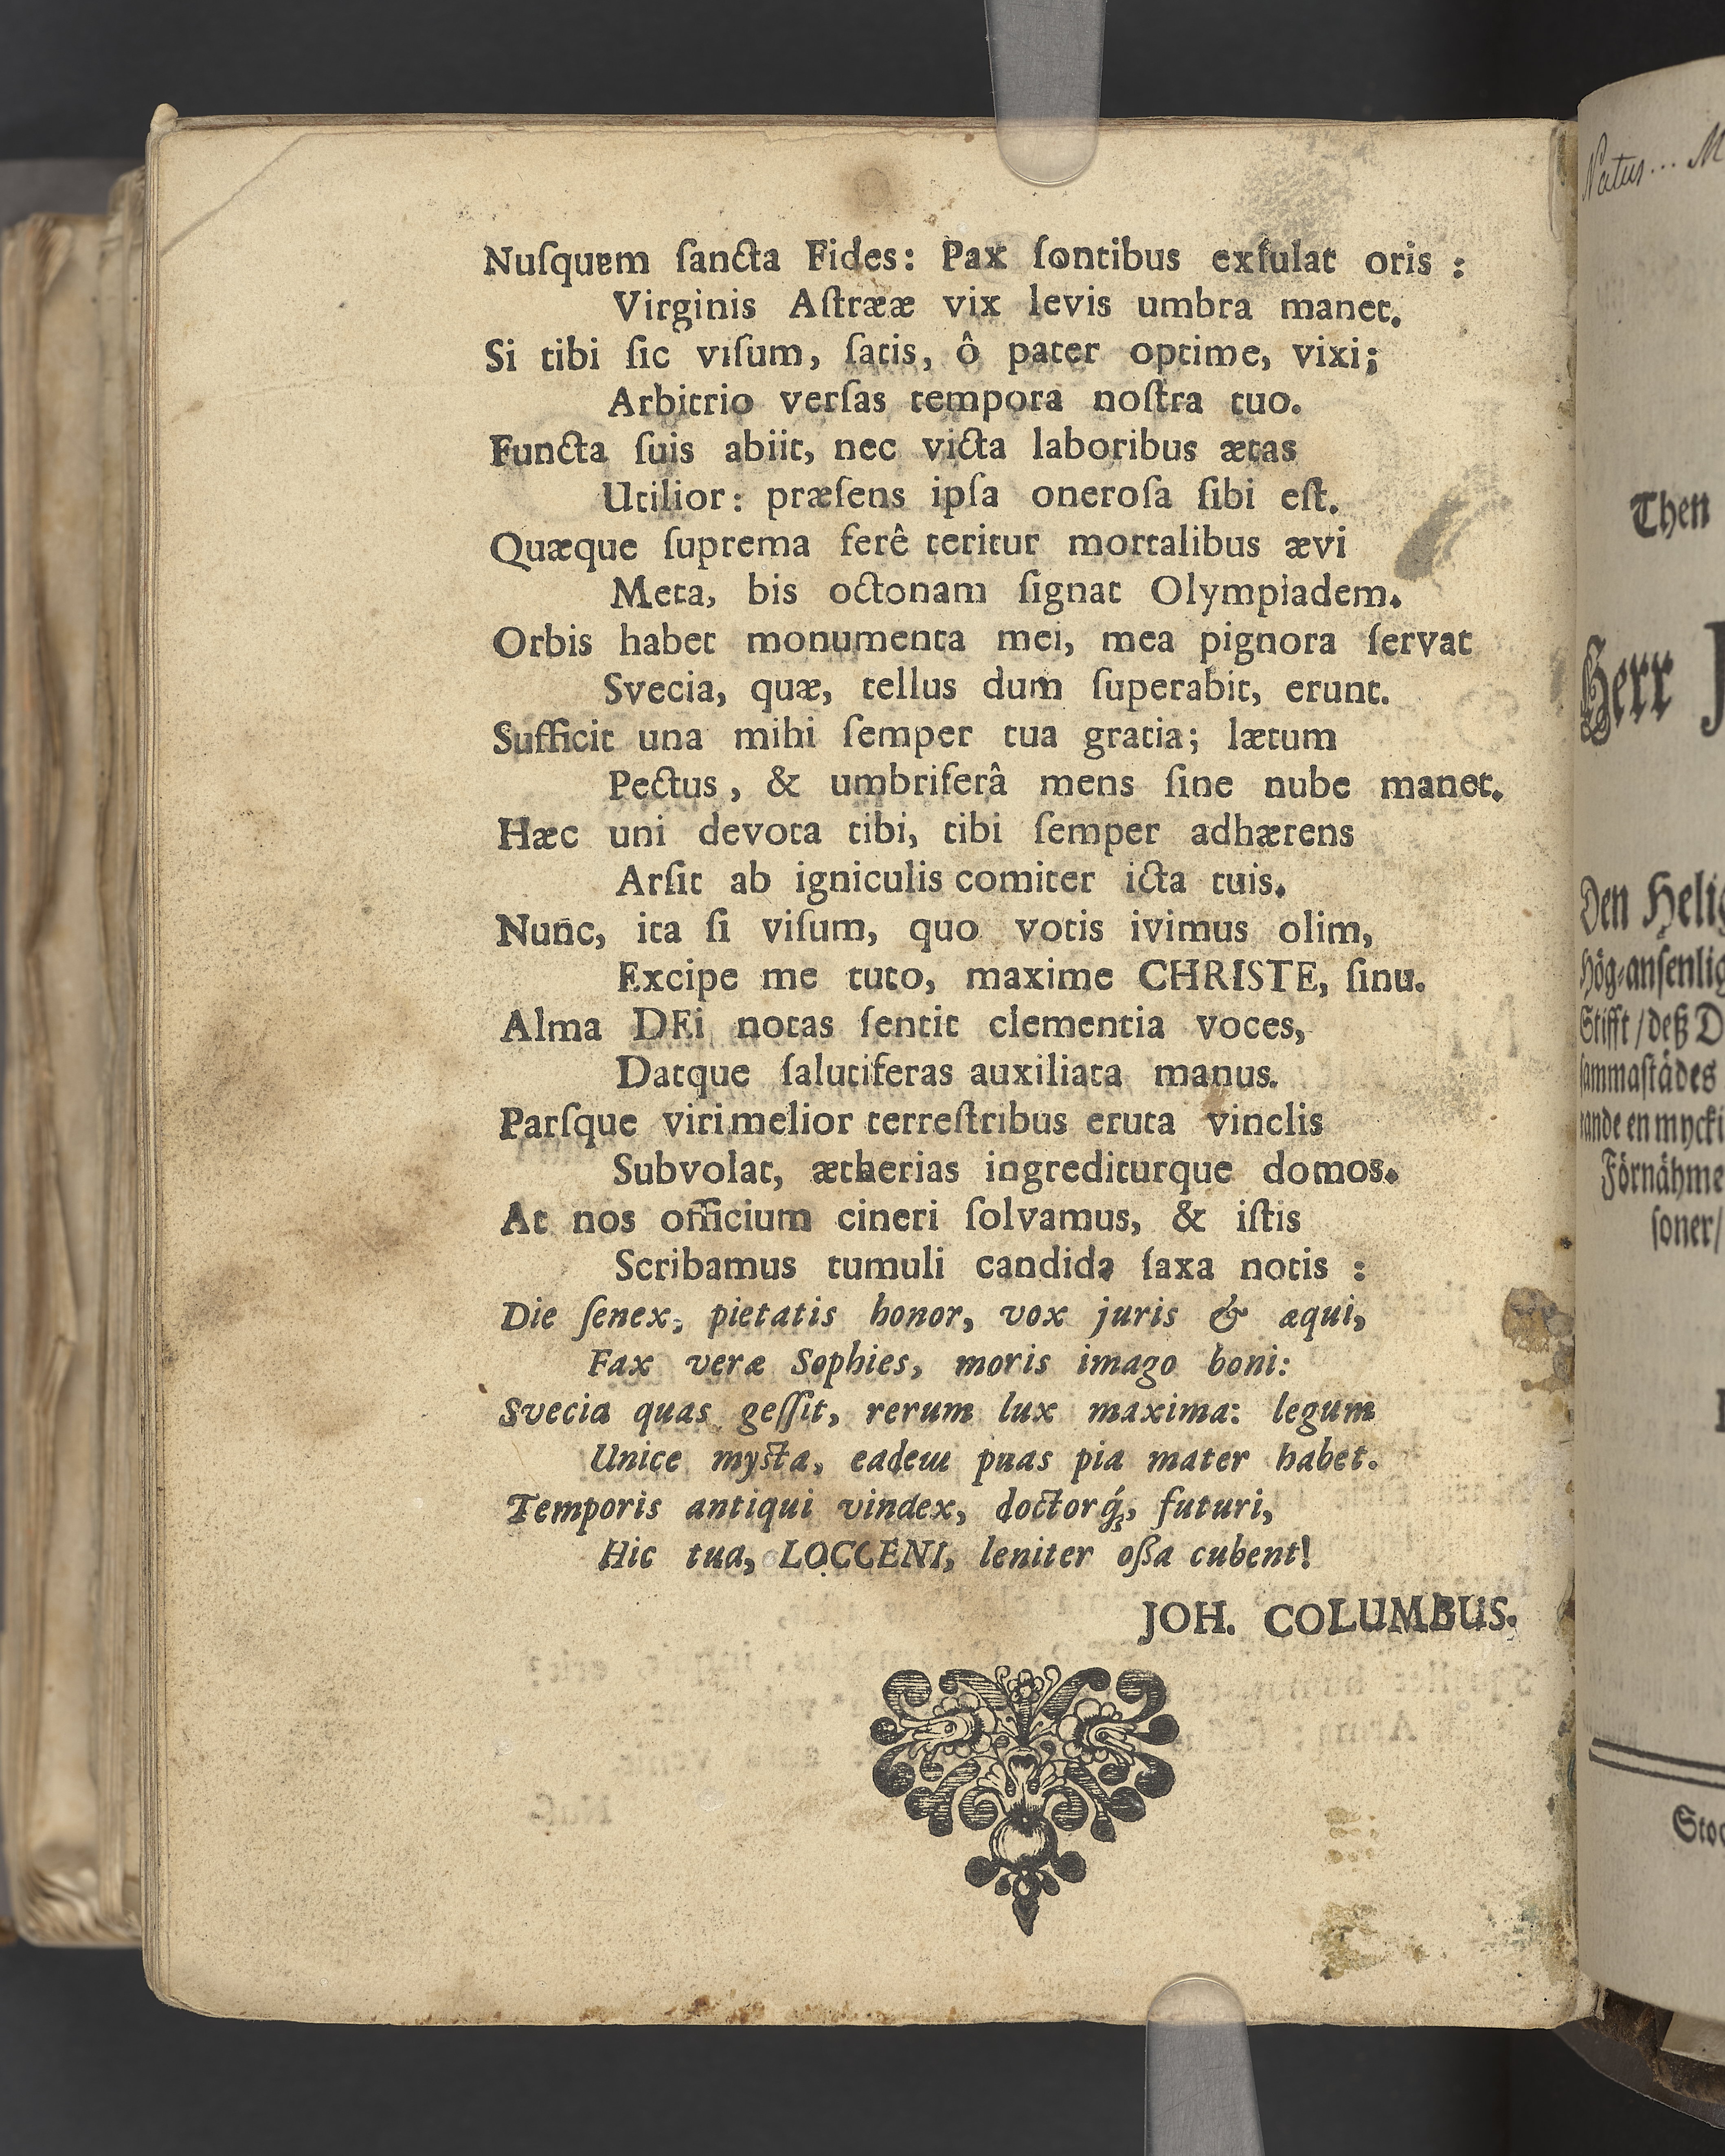 Nuſquem ſancta Fides: Pax ſontibus exſulat oris :
Virginis Aſtrææ vix levis umbra manet.
Si tibi ſic viſum, ſatis, ô pater optime, vixi;
Arbitrio verſas tempora noſtra tuo.
Functa ſuis abiit, nec victa laboribus ætas
Utilior: præſens ipſa oneroſa ſibi eſt.
Quæque ſuprema ferê teritur mortalibus ævi
Meta, bis octonam ſignat Olympiadem.
Orbis habet monumenta mei, mea pignora ſervat
Svecia, quæ, tellus dum ſuperabit, erunt.
Sufficit una mihi ſemper tua gratia; lætum
Pectus, & umbriferâ mens ſine nube manet.
Hæc uni devota tibi, tibi ſemper adhærens
Arſit ab igniculis comiter icta tuis.
Nunc, ita ſi viſum, quo votis ivimus olim,
Excipe me tuto, maxime CHRISTE, ſinu.
Alma DEi notas ſentit clementia voces,
Datque ſalutiferas auxiliata manus.
Parſque viri melior terreſtribus eruta vinclis
Subvolat, ætherias ingrediturque domos.
At nos officium cineri ſolvamus, & iſtis
Scribamus tumuli candida ſaxa notis :
Die ſenex, pietatis honor, vox juris & æqui,
Fax veræ Sophies, moris imago boni:
Svecia quas geſſit, rerum lux maxima: legum
Unice myſta, eadem puas pia mater habet.
Temporis antiqui vindex, doctorq́;, futuri,
Hic tua, LOCCENI, leniter oßa cubent!
JOH. COLUMBUS.
Natus... M
Then
Herr J
Den Helig
Hög-anſenlig
Stifft / deß D
ſammaſtädes
rande en mycki
Förnähme
ſoner/
Stoc